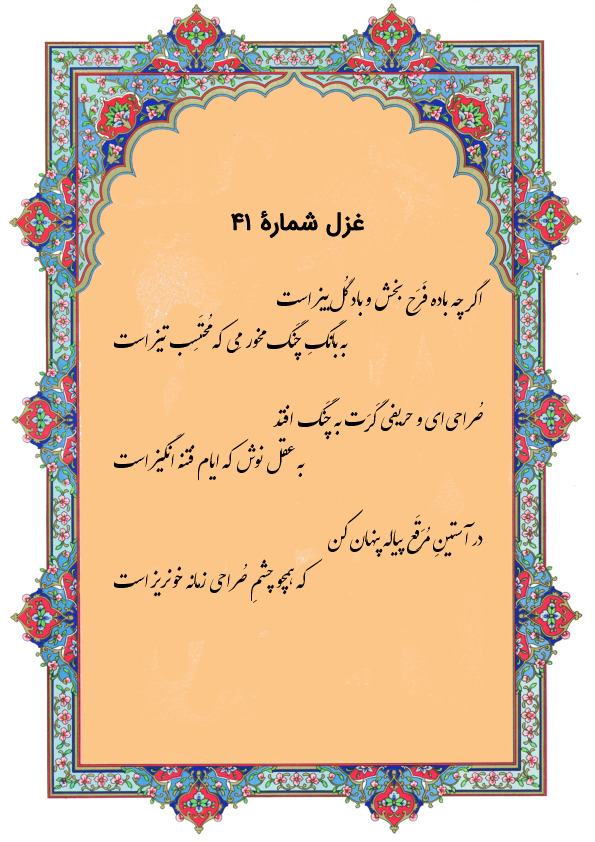 غزل شمارهٔ ۴۱
اگر چه باده فَرَح بخش و باد گُل‌بیز است
به بانگِ چنگ مخور مِی که مُحتَسِب تیز است
صُراحی ای و حریفی گَرَت به چَنگ افتد
به عقل نوش که ایام فتنه انگیز است
در آستینِ مُرَقَع پیاله پنهان کن
که همچو چشمِ صُراحی زمانه خونریز است